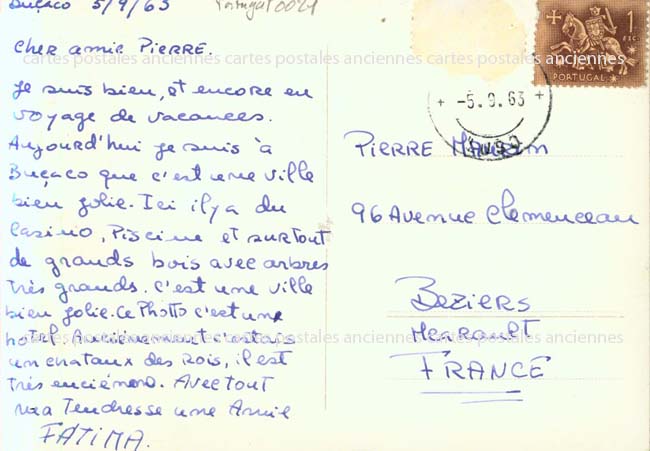 Buçaco 5/9/63 Portugal 0024
Cher amie PIERRE.
cartes postales anciennes cartes postales anciennes cartes postales anciennes
Je suis bien, et encore en
voyage de vacances.
Aujourd'hui je suis à
Buçaco que c'est une ville
bien jolie. Ici il y a du
Casino, Piscine et surtout
de grands bois avec arbres
très grands. C'est une ville
bien jolie. Ce Photto c'est une
hotel Anciènement c'est
cartes postales anciennes cartes postales anciennes cartes postales anciennes
un chataux des Rois, il est
très enciénero. Avec tout
ma Tendresse une Amie
FATIMA.
1 ESC.
PORTUGAL
-5. 9. 63
PIERRE
96 Avenue Clemenceau
BEZIERS
HERAULT
FRANCE